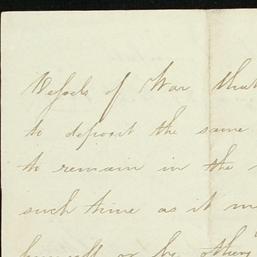 Vessels of War that
to deposit the same
to remain in the
such time as it
himself or by others